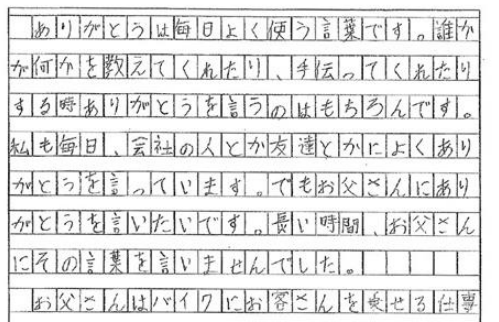 ありがとうは毎日よく使う言葉です。誰か
が何かを教えてくれたり、手伝ってくれたり
する時ありがとうを言うのはもちろんです。
私も毎日、会社の人とか友達とかによくあり
がとうを言っています。でもお父さんにあり
がとうを言いたいです。長い時間、お父さん
にその言葉を言いませんでした。
お父さんはバイクにお客さんを乗せる仕事